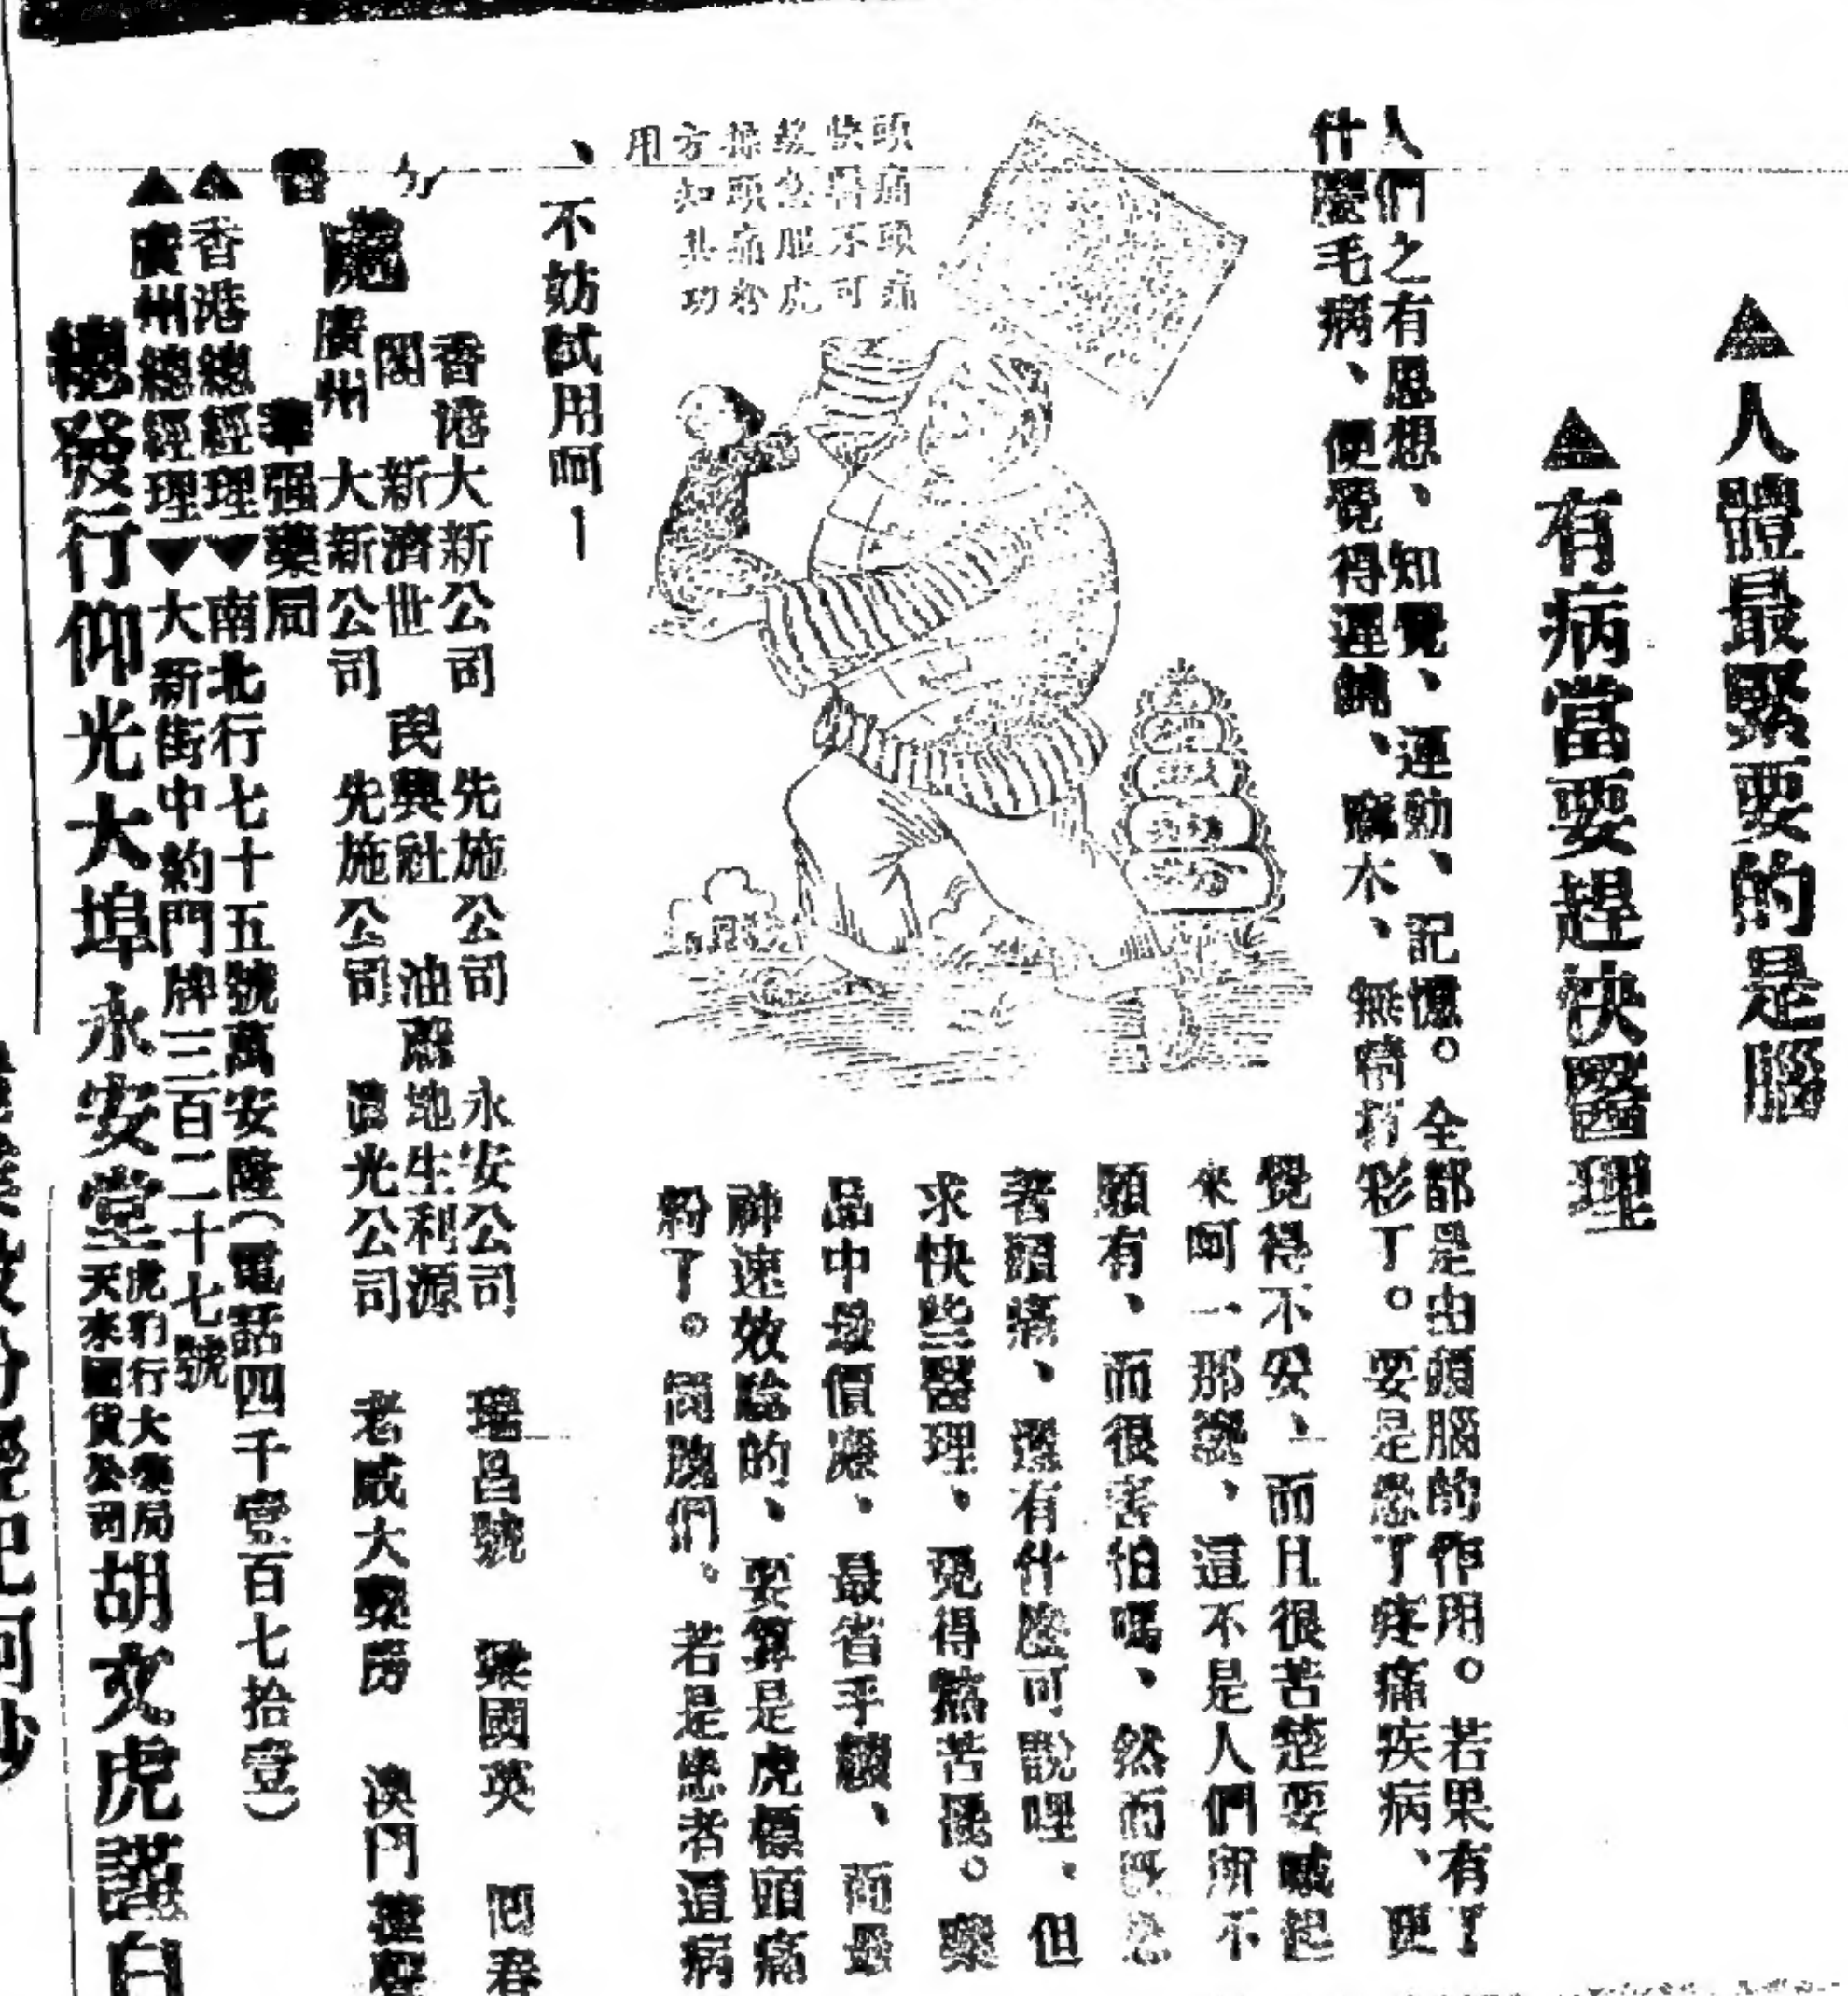 ▲人體最緊要的是腦
▲有病當要趕快醫理
人們之有思想、知覺、運動、記憶。全部是由頭腦的作用。若果有了
什麼毛病、便覺得遲鈍、麻木、無精打彩了。要是患了疼痛疾病、更
覺得不安、而且很苦楚要喊起
來呵一那變、這不是人們所不
願有、而很害怕嗎、然而既患
著頭痛、還有什麼可說哩、但
求快些醫理、免得熬苦罷。藥
品中最價廉、最省手續、而最
神速效驗的、要算是虎標頭痛
粉了。同胞們、若是患者這病
、不妨試用呵
頭痛頭痛
快醫不可
緩急服虎
標頭痛粉
方知其功
用
香港大新公司 先施公司 永安公司 瑞昌號 梁國英 同春
閣 新濟世 民興社 油蔴地生利源
分
處
廣州 大新公司 先施公司 真光公司 老威大藥房 澳門
華强藥局
▲香港總經理▼南北行七十五號萬安隆(電話四千壹百七拾壹)
▲廣州總經理▼大新街中約門牌三百二十七號
總發行仰光大埠永安堂虎豹行大藥局天來國貨公司胡文虎謹白